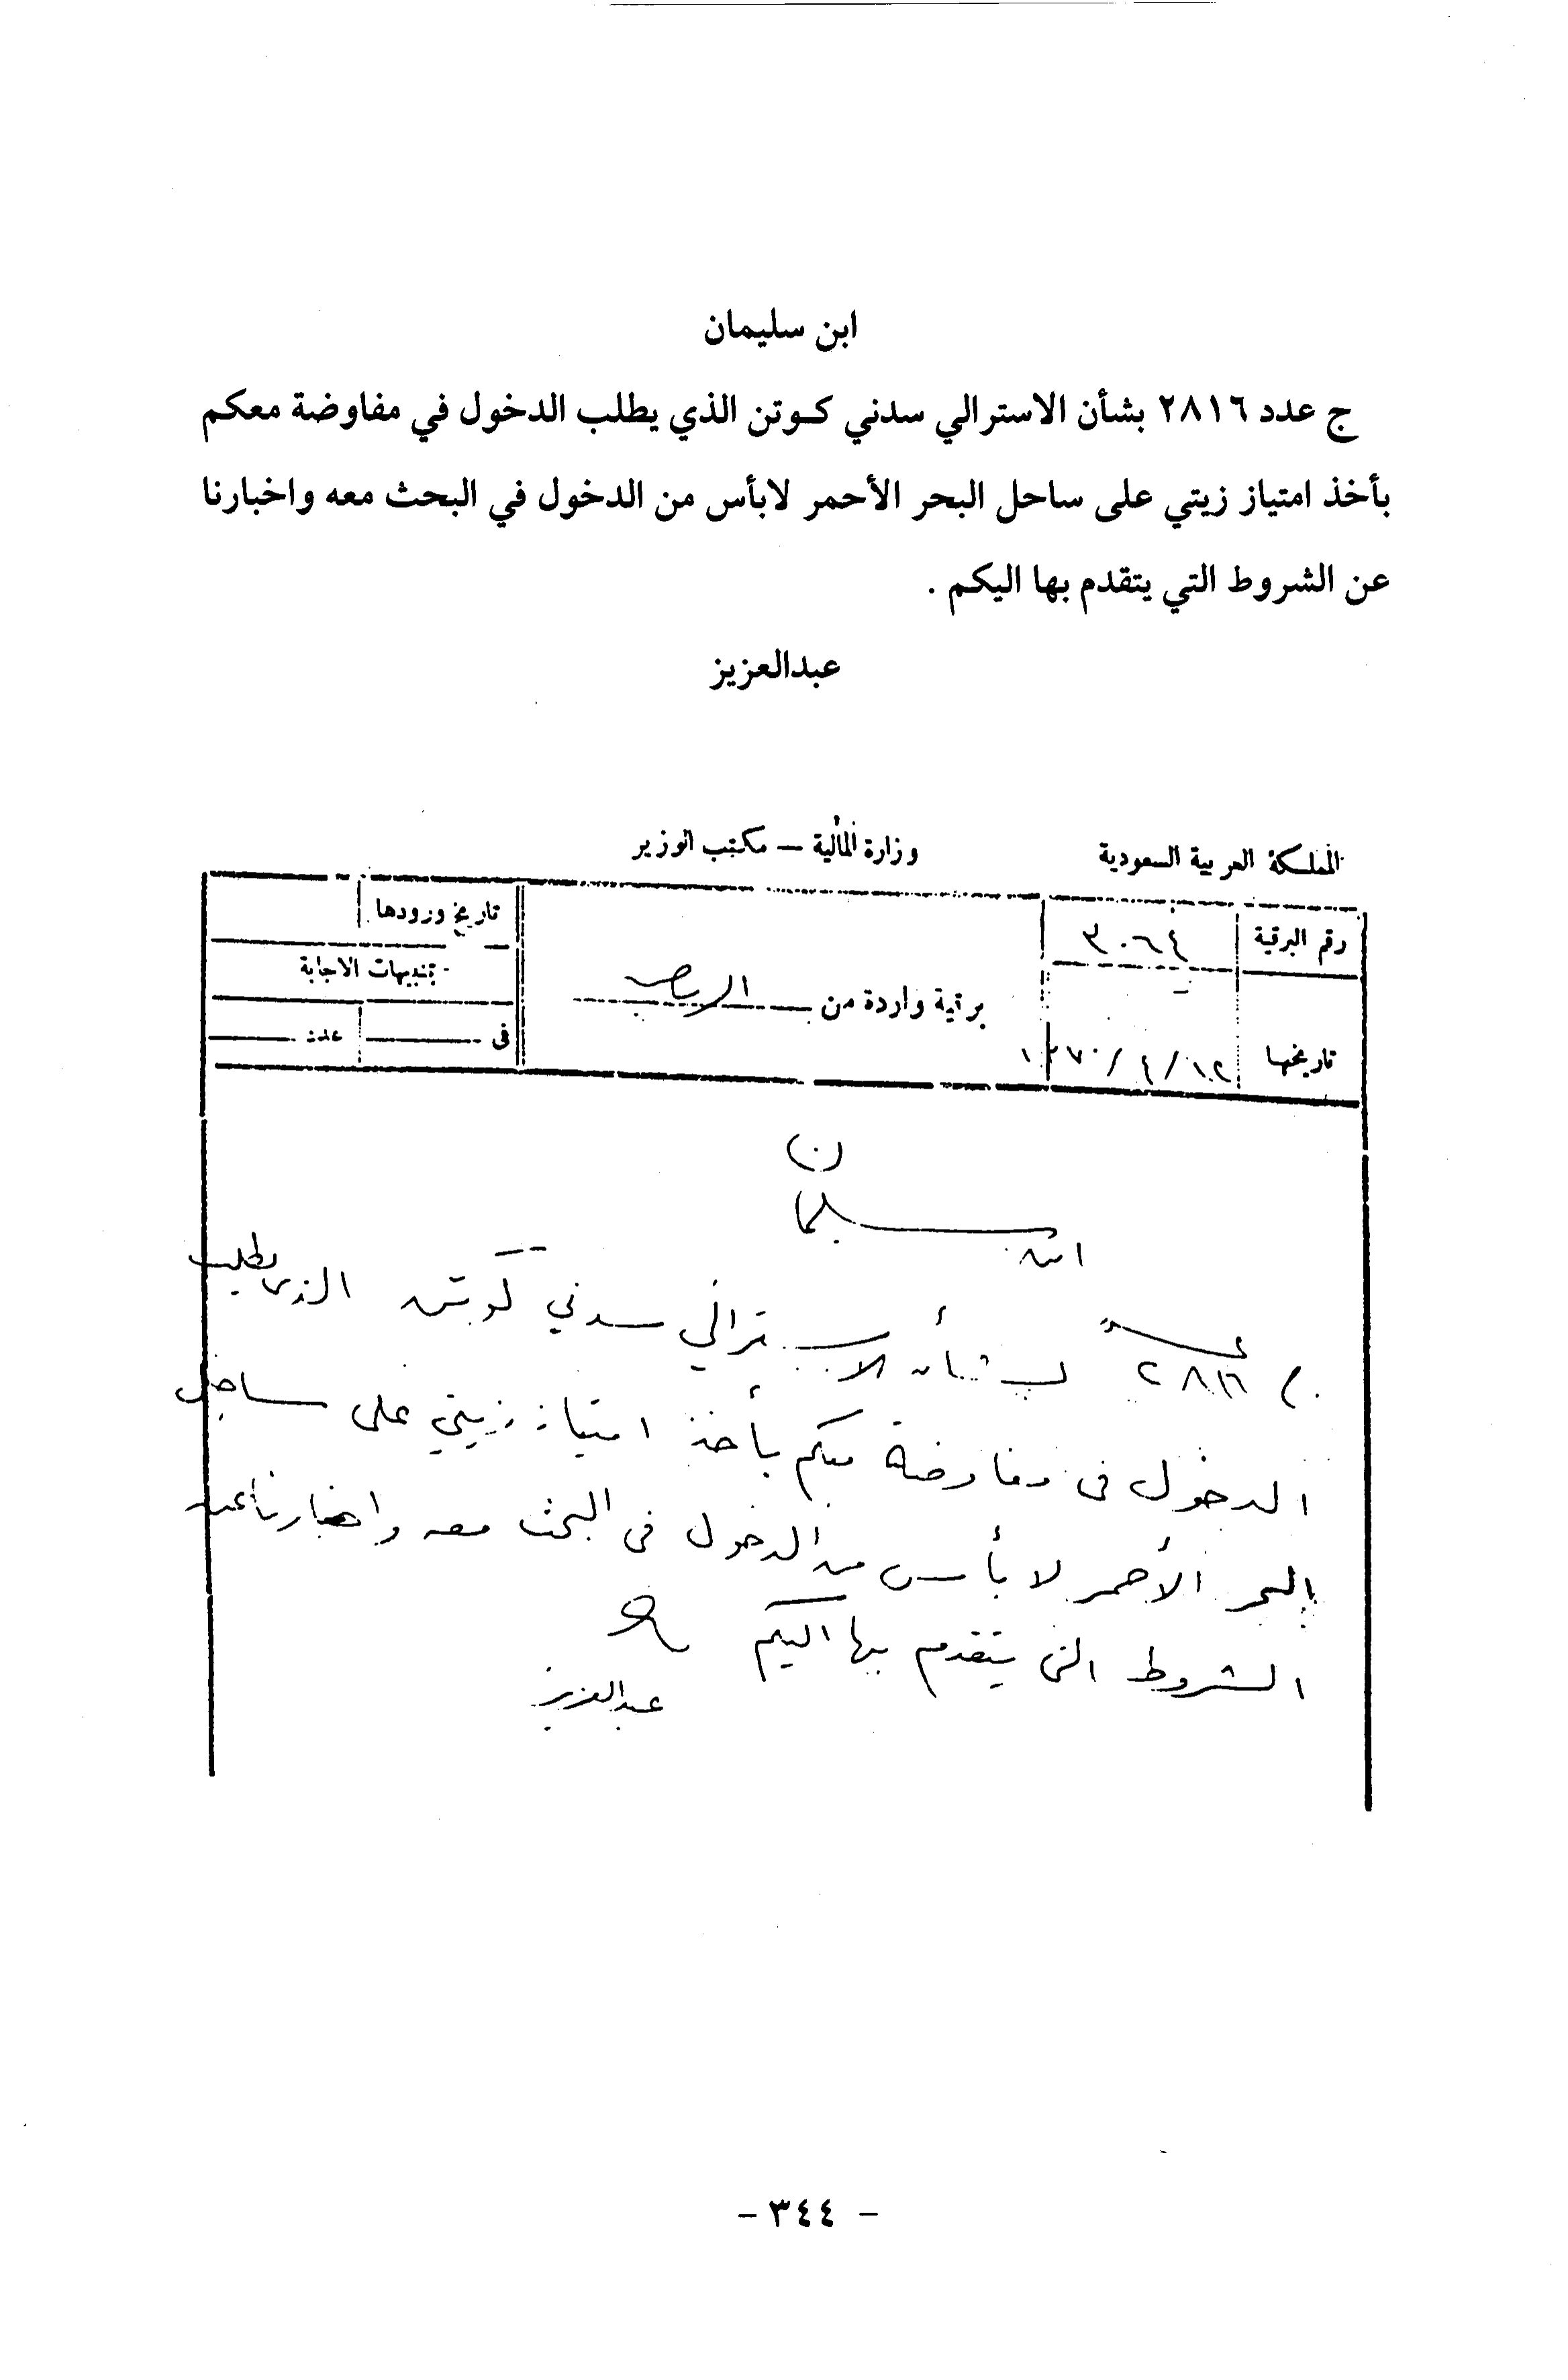 ابن سليمان
ج عدد ٢٨١٦ بشأن الاسترالي سدني كوتن الذي يطلب الدخول في مفاوضة معكم
بأخذ امتياز زيتي على ساحل البحر الأحمر لابأس من الدخول في البحث معه واخبارنا
عن الشروط التي يتقدم بها اليكم .
عبدالعزيز
المملكة العربية السعودية
وزارة المالية — مكتب الوزير
رقم البرقية ٣٠٦٤
تاريخها ١٣٧٠/٤/١٢
برقية واردة من الرياض
تاريخ ورودها
تنبيهات الاجابة
في عدد
ابن سليمان
ج عدد ٢٨١٦ بشأن الاسترالي سدني كوتن الذي يطلب
الدخول في مفاوضة معكم بأخذ امتياز زيتي على ساحل
البحر الأحمر لا بأس من الدخول في البحث معه واخبارنا عن
الشروط التي يتقدم بها اليكم
عبدالعزيز
- ٣٤٤ -